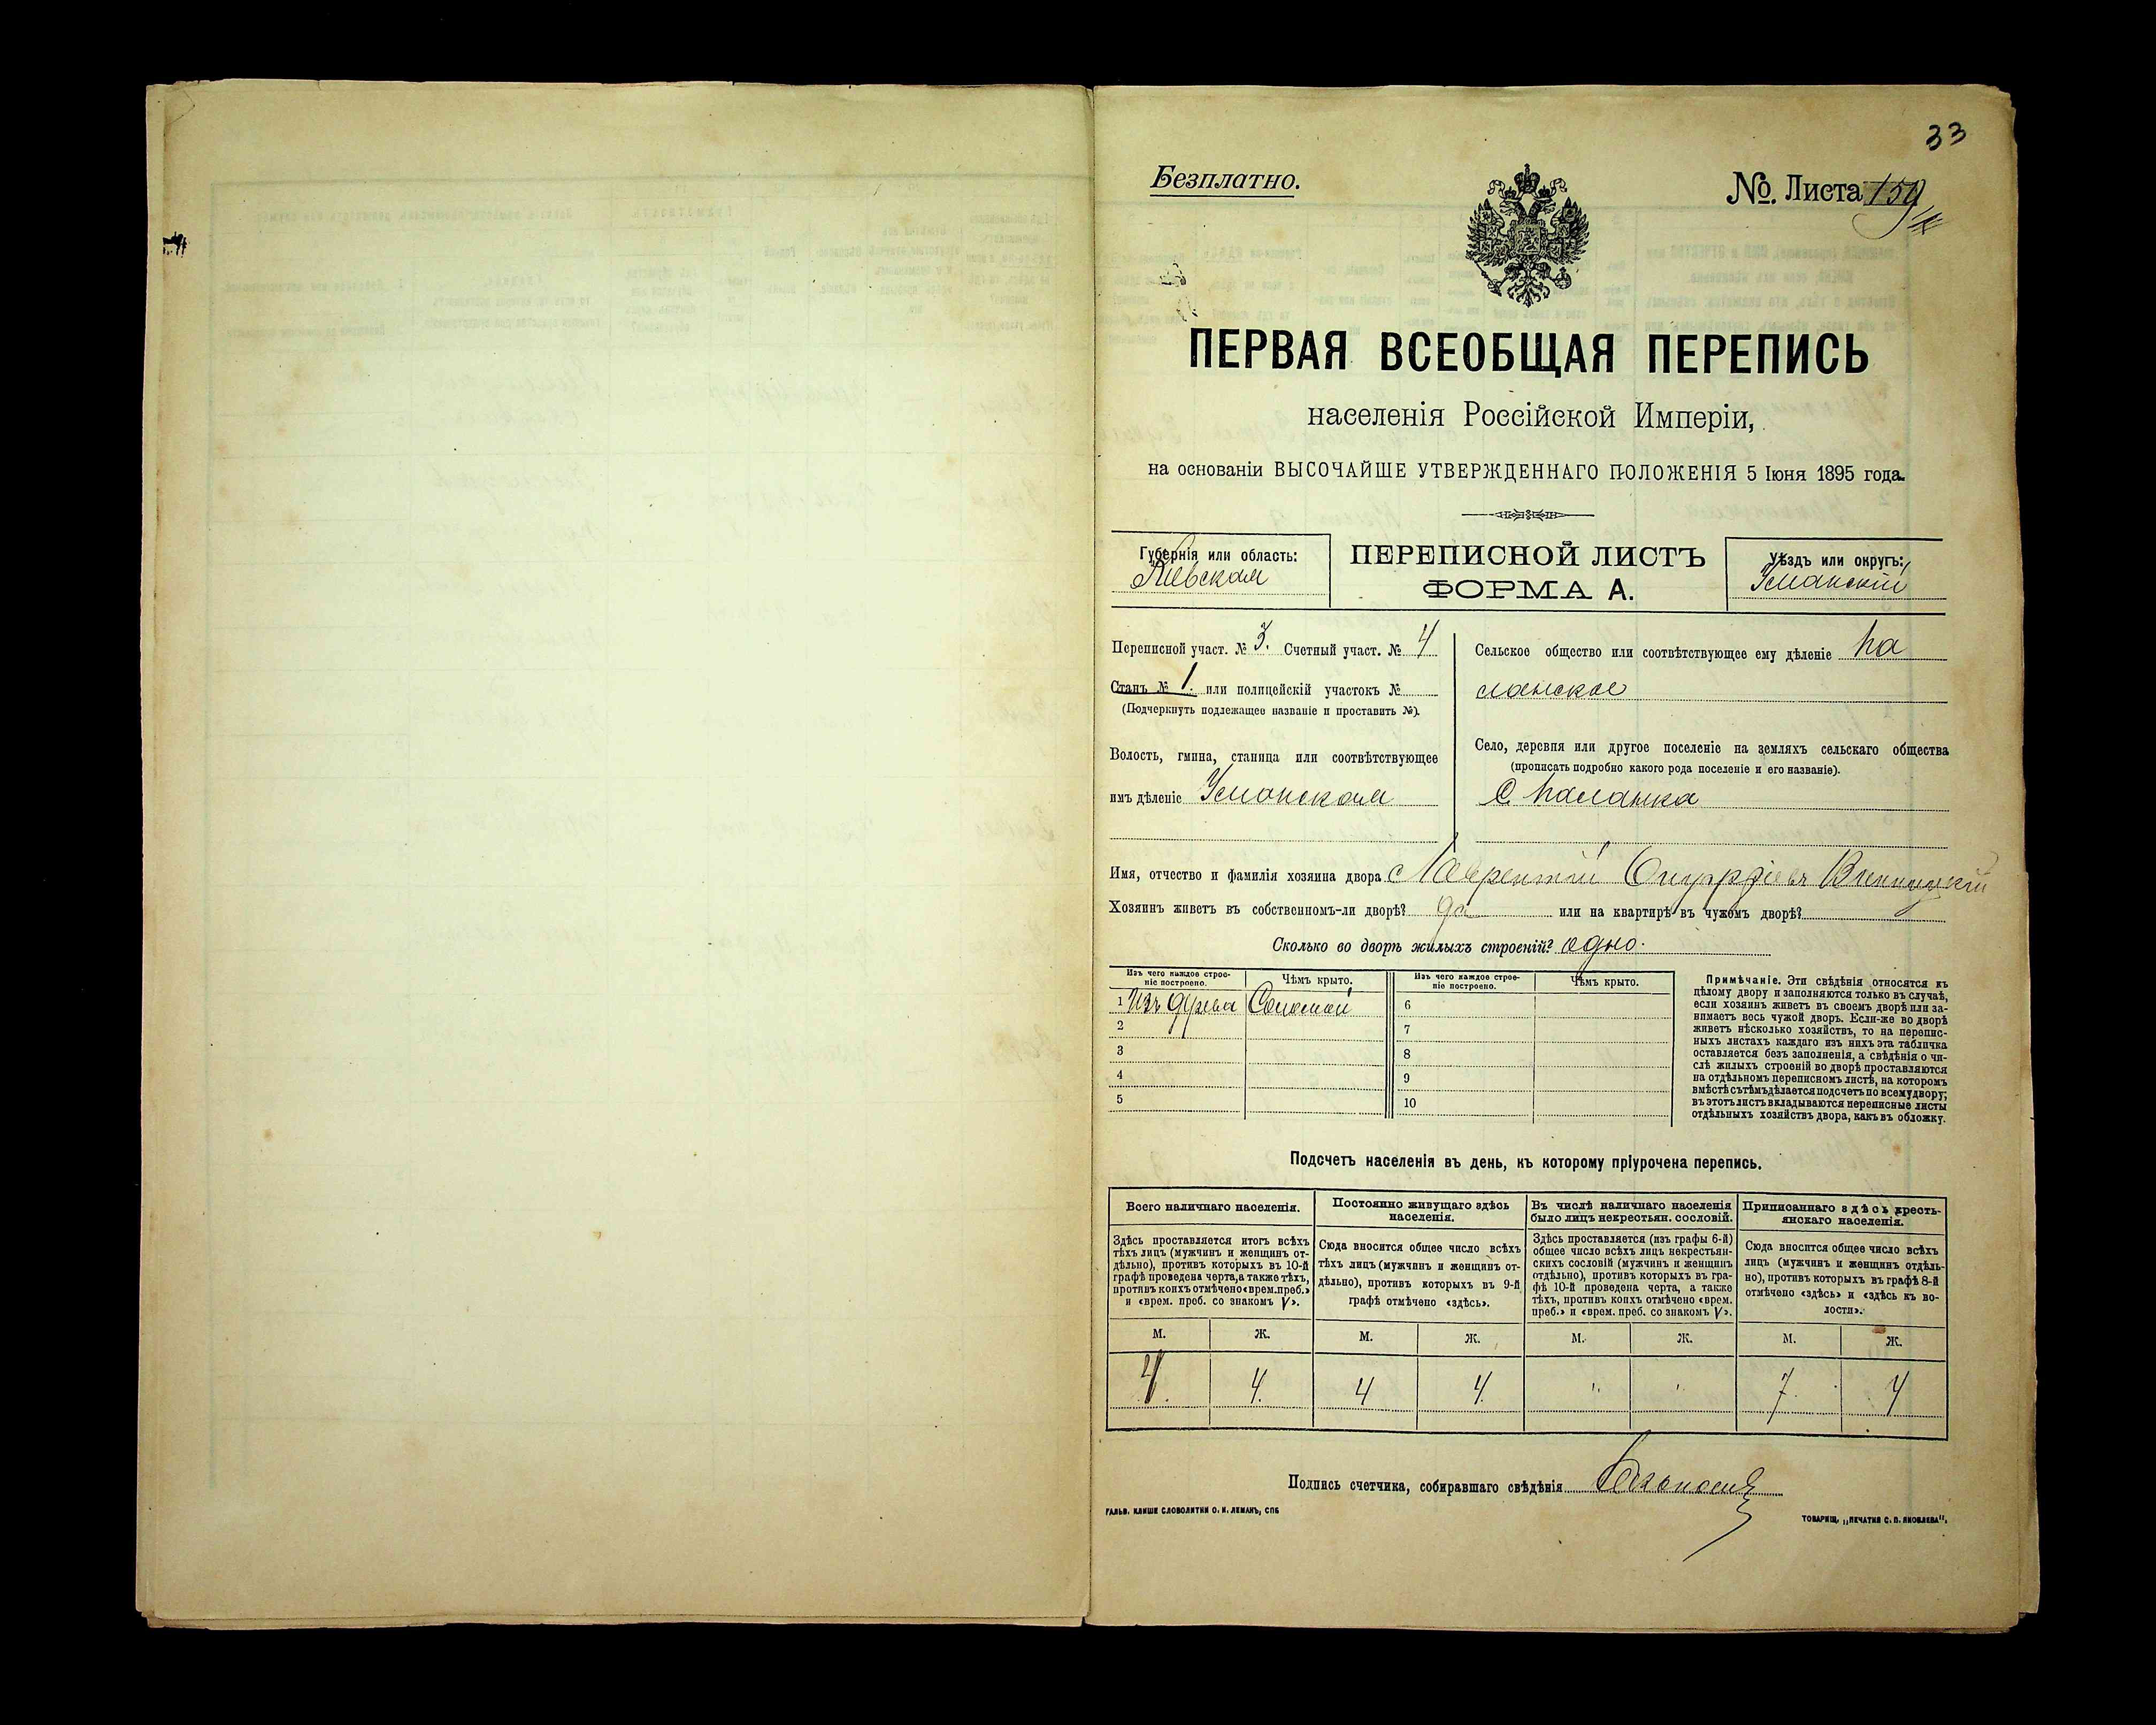 33
Безплатно.
№. Листа 159
ПЕРВАЯ ВСЕОБЩАЯ ПЕРЕПИСЬ
населенія Россійской Имперіи,
на основаніи ВЫСОЧАЙШЕ УТВЕРЖДЕННАГО ПОЛОЖЕНІЯ 5 Іюня 1895 года.
Губернія или область:
Кіевская
ПЕРЕПИСНОЙ ЛИСТЪ
ФОРМА А.
Уѣздъ или округъ:
Уманскій
Переписной участ. № 3. Счетный участ. № 4
Станъ № 1. или полицейскій участокъ №
(Подчеркнуть подлежащее названіе и проставить №).
Волость, гмина, станица или соотвѣтствующее
имъ дѣленіе Уманская
Сельское общество или соотвѣтствующее ему дѣленіе Па
ланское
Село, деревня или другое поселеніе на земляхъ сельскаго общества
(прописать подробно какого рода поселеніе и его названіе).
С. Паланка
Имя, отчество и фамилія хозяина двора Лаврентій Онуфріевъ Винницкій
Хозяинъ живетъ въ собственномъ-ли дворѣ? да или на квартирѣ въ чужомъ дворѣ?
Сколько во дворѣ жилыхъ строеній? одно.
Изъ чего каждое строе-
ніе построено.
Чѣмъ крыто.
Изъ чего каждое строе-
ніе построено.
Чѣмъ крыто.
1 Изъ дерева Соломой 6
2 7
3 8
4 9
5 10
Примѣчаніе. Эти свѣдѣнія относятся къ
цѣлому двору и заполняются только въ случаѣ,
если хозяинъ живетъ въ своемъ дворѣ или за-
нимаетъ весь чужой дворъ. Если-же во дворѣ
живетъ нѣсколько хозяйствъ, то на перепис-
ныхъ листахъ каждаго изъ нихъ эта табличка
оставляется безъ заполненія, а свѣдѣнія о чи-
слѣ жилыхъ строеній во дворѣ проставляются
на отдѣльномъ переписномъ листѣ, на которомъ
вмѣстѣ съ тѣмъ дѣлается подсчетъ по всему двору;
въ этотъ листъ вкладываются переписные листы
отдѣльныхъ хозяйствъ двора, какъ въ обложку.
Подсчетъ населенія въ день, къ которому пріурочена перепись.
Всего наличнаго населенія.
Здѣсь проставляется итогъ всѣхъ
тѣхъ лицъ (мужчинъ и женщинъ от-
дѣльно), противъ которыхъ въ 10-й
графѣ проведена черта, а также тѣхъ,
противъ коихъ отмѣчено «врем. преб.»
и «врем. преб. со знакомъ V».
Постоянно живущаго здѣсь
населенія.
Сюда вносится общее число всѣхъ
тѣхъ лицъ (мужчинъ и женщинъ от-
дѣльно), противъ которыхъ въ 9-й
графѣ отмѣчено «здѣсь».
Въ числѣ наличнаго населенія
было лицъ некрестьян. сословій.
Здѣсь проставляется (изъ графы 6-й)
общее число всѣхъ лицъ некрестьян-
скихъ сословій (мужчинъ и женщинъ
отдѣльно), противъ которыхъ въ гра-
фѣ 10-й проведена черта, а также
тѣхъ, противъ коихъ отмѣчено «врем.
преб.» и «врем. преб. со знакомъ V».
Приписаннаго здѣсь кресть-
янскаго населенія.
Сюда вносится общее число всѣхъ
лицъ (мужчинъ и женщинъ отдѣль-
но), противъ которыхъ въ графѣ 8-й
отмѣчено «здѣсь» и «здѣсь въ во-
лости».
М. Ж. М. Ж. М. Ж. М. Ж.
4. 4. 4 4 " " 7. 4
Подпись счетчика, собиравшаго свѣдѣнія
ГАЛЬВ. КЛИШЕ СЛОВОЛИТНИ О. И. ЛЕМАНЪ, СПБ
ТОВАРИЩ. „ПЕЧАТНЯ С. П. ЯКОВЛЕВА".